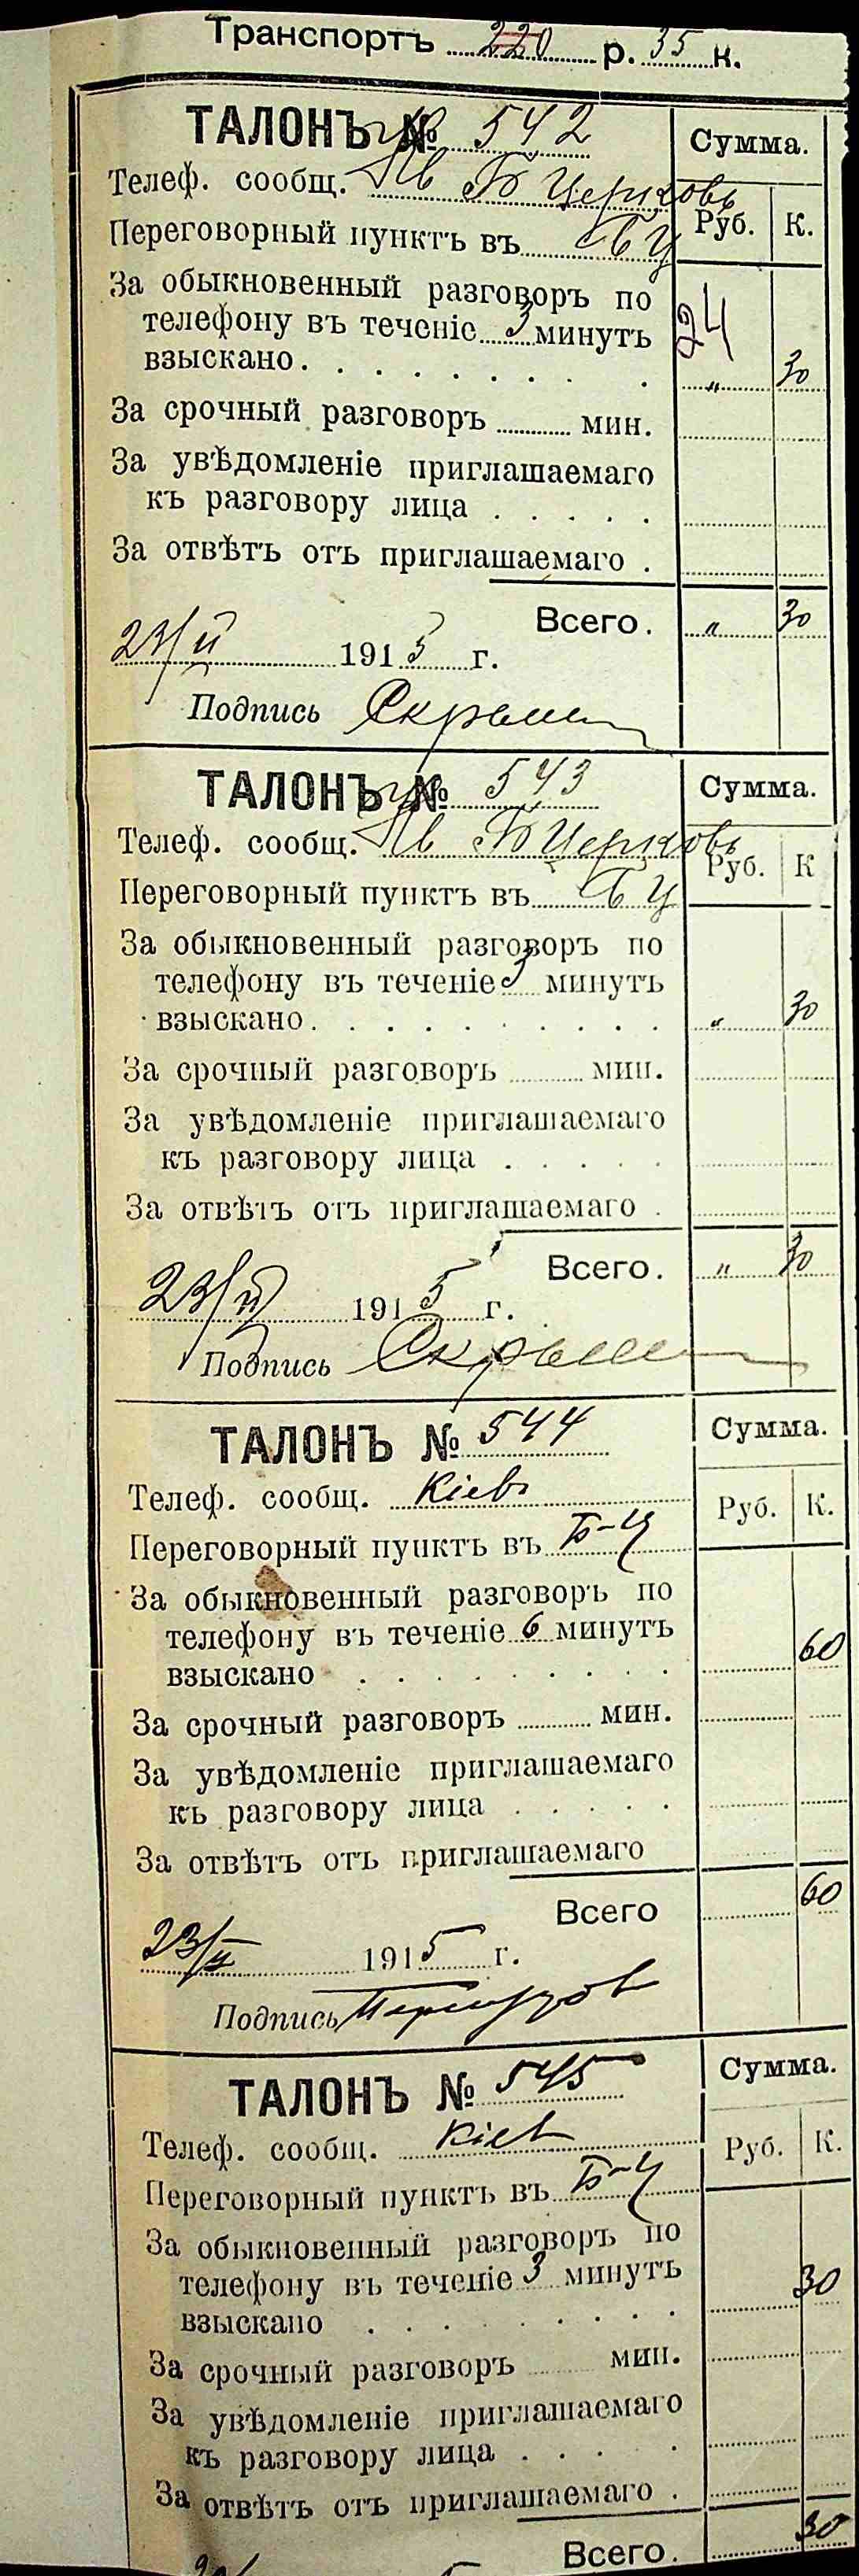 Транспортъ 220 р. 35 к.
ТАЛОНЪ № 542
Сумма.
Телеф. сообщ. Б Церковь
Руб. К.
Переговорный пунктъ въ БЦ
За обыкновенный разговоръ по
телефону въ теченіе 3 минутъ
взыскано. . . . . . . . . „ 30
24
За срочный разговоръ ........ мин.
За увѣдомленіе приглашаемаго
къ разговору лица . . . . .
За отвѣтъ отъ приглашаемаго .
Всего. „ 30
23/II 1915 г.
Подпись
ТАЛОНЪ № 543
Сумма.
Телеф. сообщ. Б Церковь
Руб. К
Переговорный пунктъ въ БЦ
За обыкновенный разговоръ по
телефону въ теченіе 3 минутъ
взыскано. . . . . . . . . „ 30
За срочный разговоръ ........ мин.
За увѣдомленіе приглашаемаго
къ разговору лица . . . . .
За отвѣтъ отъ приглашаемаго .
Всего. „ 30
23/II 1915 г.
Подпись
ТАЛОНЪ № 544
Сумма.
Телеф. сообщ. Кіевъ
Руб. К.
Переговорный пунктъ въ Б-Ц
За обыкновенный разговоръ по
телефону въ теченіе 6 минутъ
взыскано . . . . . . . . 60
За срочный разговоръ ........ мин.
За увѣдомленіе приглашаемаго
къ разговору лица . . . . .
За отвѣтъ отъ приглашаемаго
Всего 60
23/II 1915 г.
Подпись
ТАЛОНЪ № 545
Сумма.
Телеф. сообщ. Кіев
Руб. К.
Переговорный пунктъ въ Б-Ц
За обыкновенный разговоръ по
телефону въ теченіе 3 минутъ
взыскано . . . . . . . . 30
За срочный разговоръ ........ мин.
За увѣдомленіе приглашаемаго
къ разговору лица . . . . .
За отвѣтъ отъ приглашаемаго .
Всего. 30